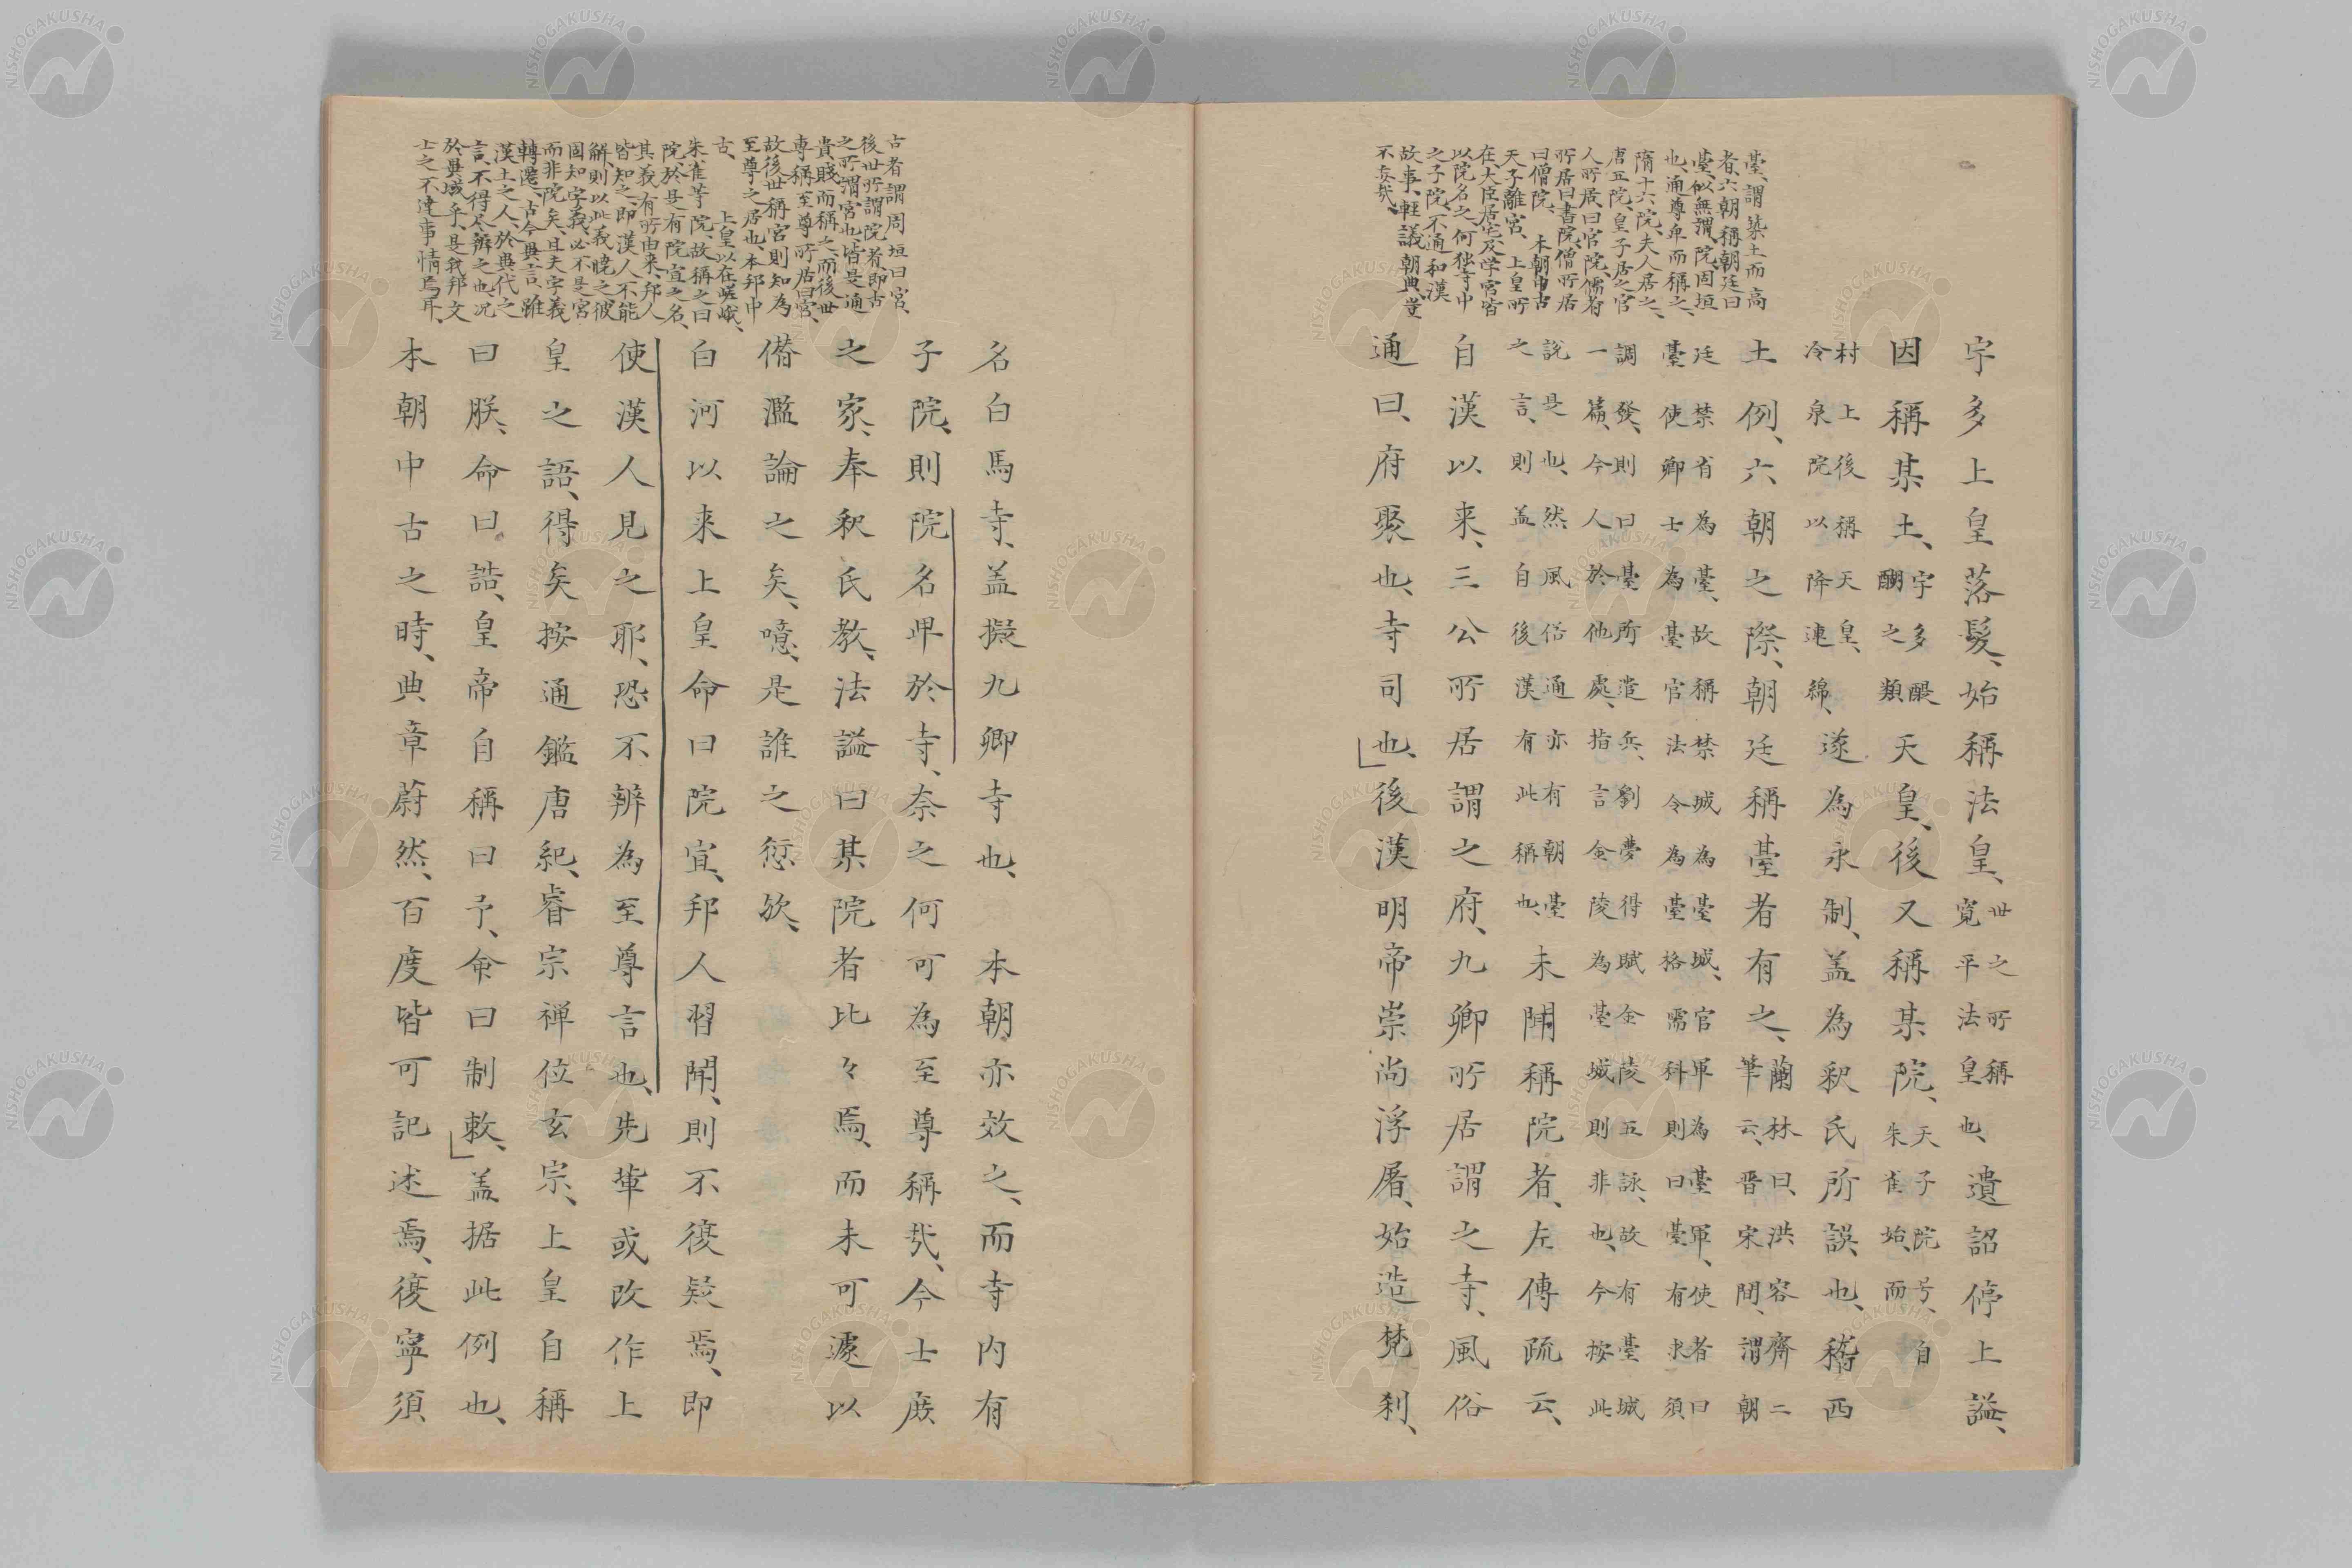 臺、謂築土而高
者、六朝稱朝廷曰
臺、似無謂、院周垣
也、通尊卑而稱之、
隋十六院、夫人居之、
唐五院、皇子居之、官
人所居、曰官院、儒者
所居曰書院、僧所居
曰僧院、本朝中古
天子離宮、上皇所
在、大臣居宅及学宮皆
以院名之、何独寺中
之子院、不通和漢
故事、軽議朝典、豈
不妄哉、
宇多上皇落髮、始稱法皇、世之所稱寬平法皇也、遺詔停上謚、
因稱某土、宇多醍醐之類天皇、後又稱某院、天子院号、自朱雀始、而
村上後稱天皇、冷泉院以降連綿、遂為永制、盖為釈氏所誤也、稱西
土例、六朝之際、朝廷稱臺者有之、蘭林曰、洪容齋二筆云、晋宋間、謂朝
廷禁省為臺、故稱禁城為臺城、官軍為臺軍、使者曰臺使卿士為臺官法令為臺格需科則曰臺有求須
調發、則曰臺所遣兵、劉夢得賦金陵五詠、故有臺城一篇、今人於他處、指言金陵為臺城則非也、今按此
説是也、然風俗通亦有朝臺之言、則盖自後漢有此稱也、未聞稱院者、左傳疏云、
自漢以来、三公所居謂之府、九卿所居謂之寺、風俗
通曰、府聚也、寺司也、後漢明帝崇尚浮屠、始造梵刹、
古者謂周垣曰宮、
後世所謂院者、即古
之所謂宮也、皆是通
貴賤而稱之、而後世
專稱至尊所居曰宮、
故後世稱宮則知為
至尊之居也、本邦中
古、上皇以在嵯峨、
朱雀等院、故稱之曰
院、於是有院宣之名、
其義有所由来、邦人
皆知之、即漢人不能
解、則以此義曉之、彼
固知字義、必不是宮
而非院矣、且夫字義
轉遷、古今異言、雖
漢土之人、於異代之
言、不得尽辨之也、况
於異域乎、是我邦文
士之不達事情焉耳、
名白馬寺、盖擬九卿寺也、本朝亦效之、而寺内有
子院、則院名卑於寺、奈之何可為至尊稱哉、今士庶
之家、奉釈氏教、法謚曰某院者比々焉、而未可遽以
僣濫論之矣、噫、是誰之愆欤、
白河以来上皇命曰院宣、邦人習聞、則不復疑焉、即
使漢人見之耶、恐不辨為至尊言也、先輩或改作上
皇之語、得矣按通鑑唐紀、睿宗禅位玄宗、上皇自稱
曰朕、命曰誥、皇帝自稱曰予、命曰制敕、盖据此例也、
本朝中古之時、典章蔚然、百度皆可記述焉、復寧須